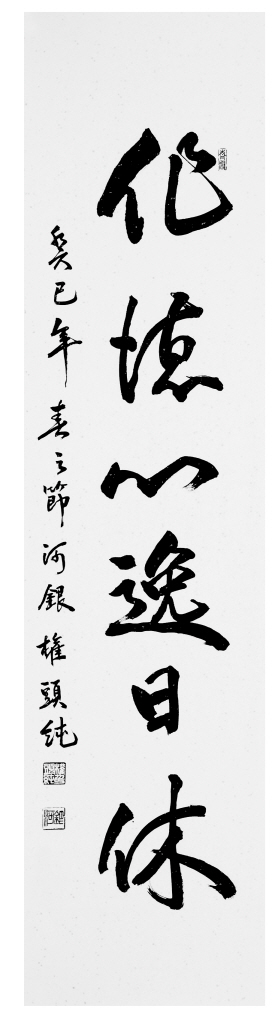 作德心逸日休
癸巳年春之節河銀權頭純